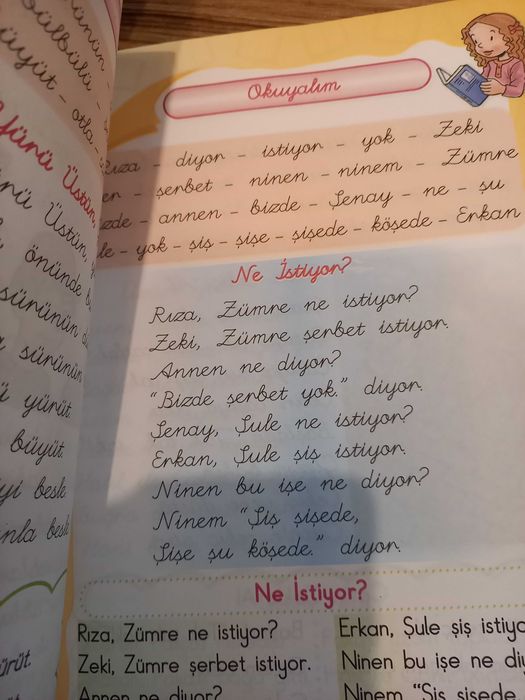 bülbülü
büyüt - otla -
Üstün,
Üstün,
önünde
sürünün
sürünün
yürüt.
büyüt.
besle.
besle
yürüt.
Okuyalım
Rıza - diyor - istiyor - yok - Zeki
- şerbet - ninen - ninem - Zümre
- annen - bizde - Şenay - ne - şu
- yok - şiş - şişe - şişede - köşede - Erkan
Ne İstiyor?
Rıza, Zümre ne istiyor?
Zeki, Zümre şerbet istiyor.
Annen ne diyor?
"Bizde şerbet yok." diyor.
Şenay, Şule ne istiyor?
Erkan, Şule şiş istiyor.
Ninen bu işe ne diyor?
Ninem "Şiş şişede,
Şişe şu köşede." diyor.
Ne İstiyor?
Rıza, Zümre ne istiyor?
Zeki, Zümre şerbet istiyor.
Annen ne diyor?
Erkan, Şule şiş
Ninen bu işe ne
Ninem "Şiş şişede